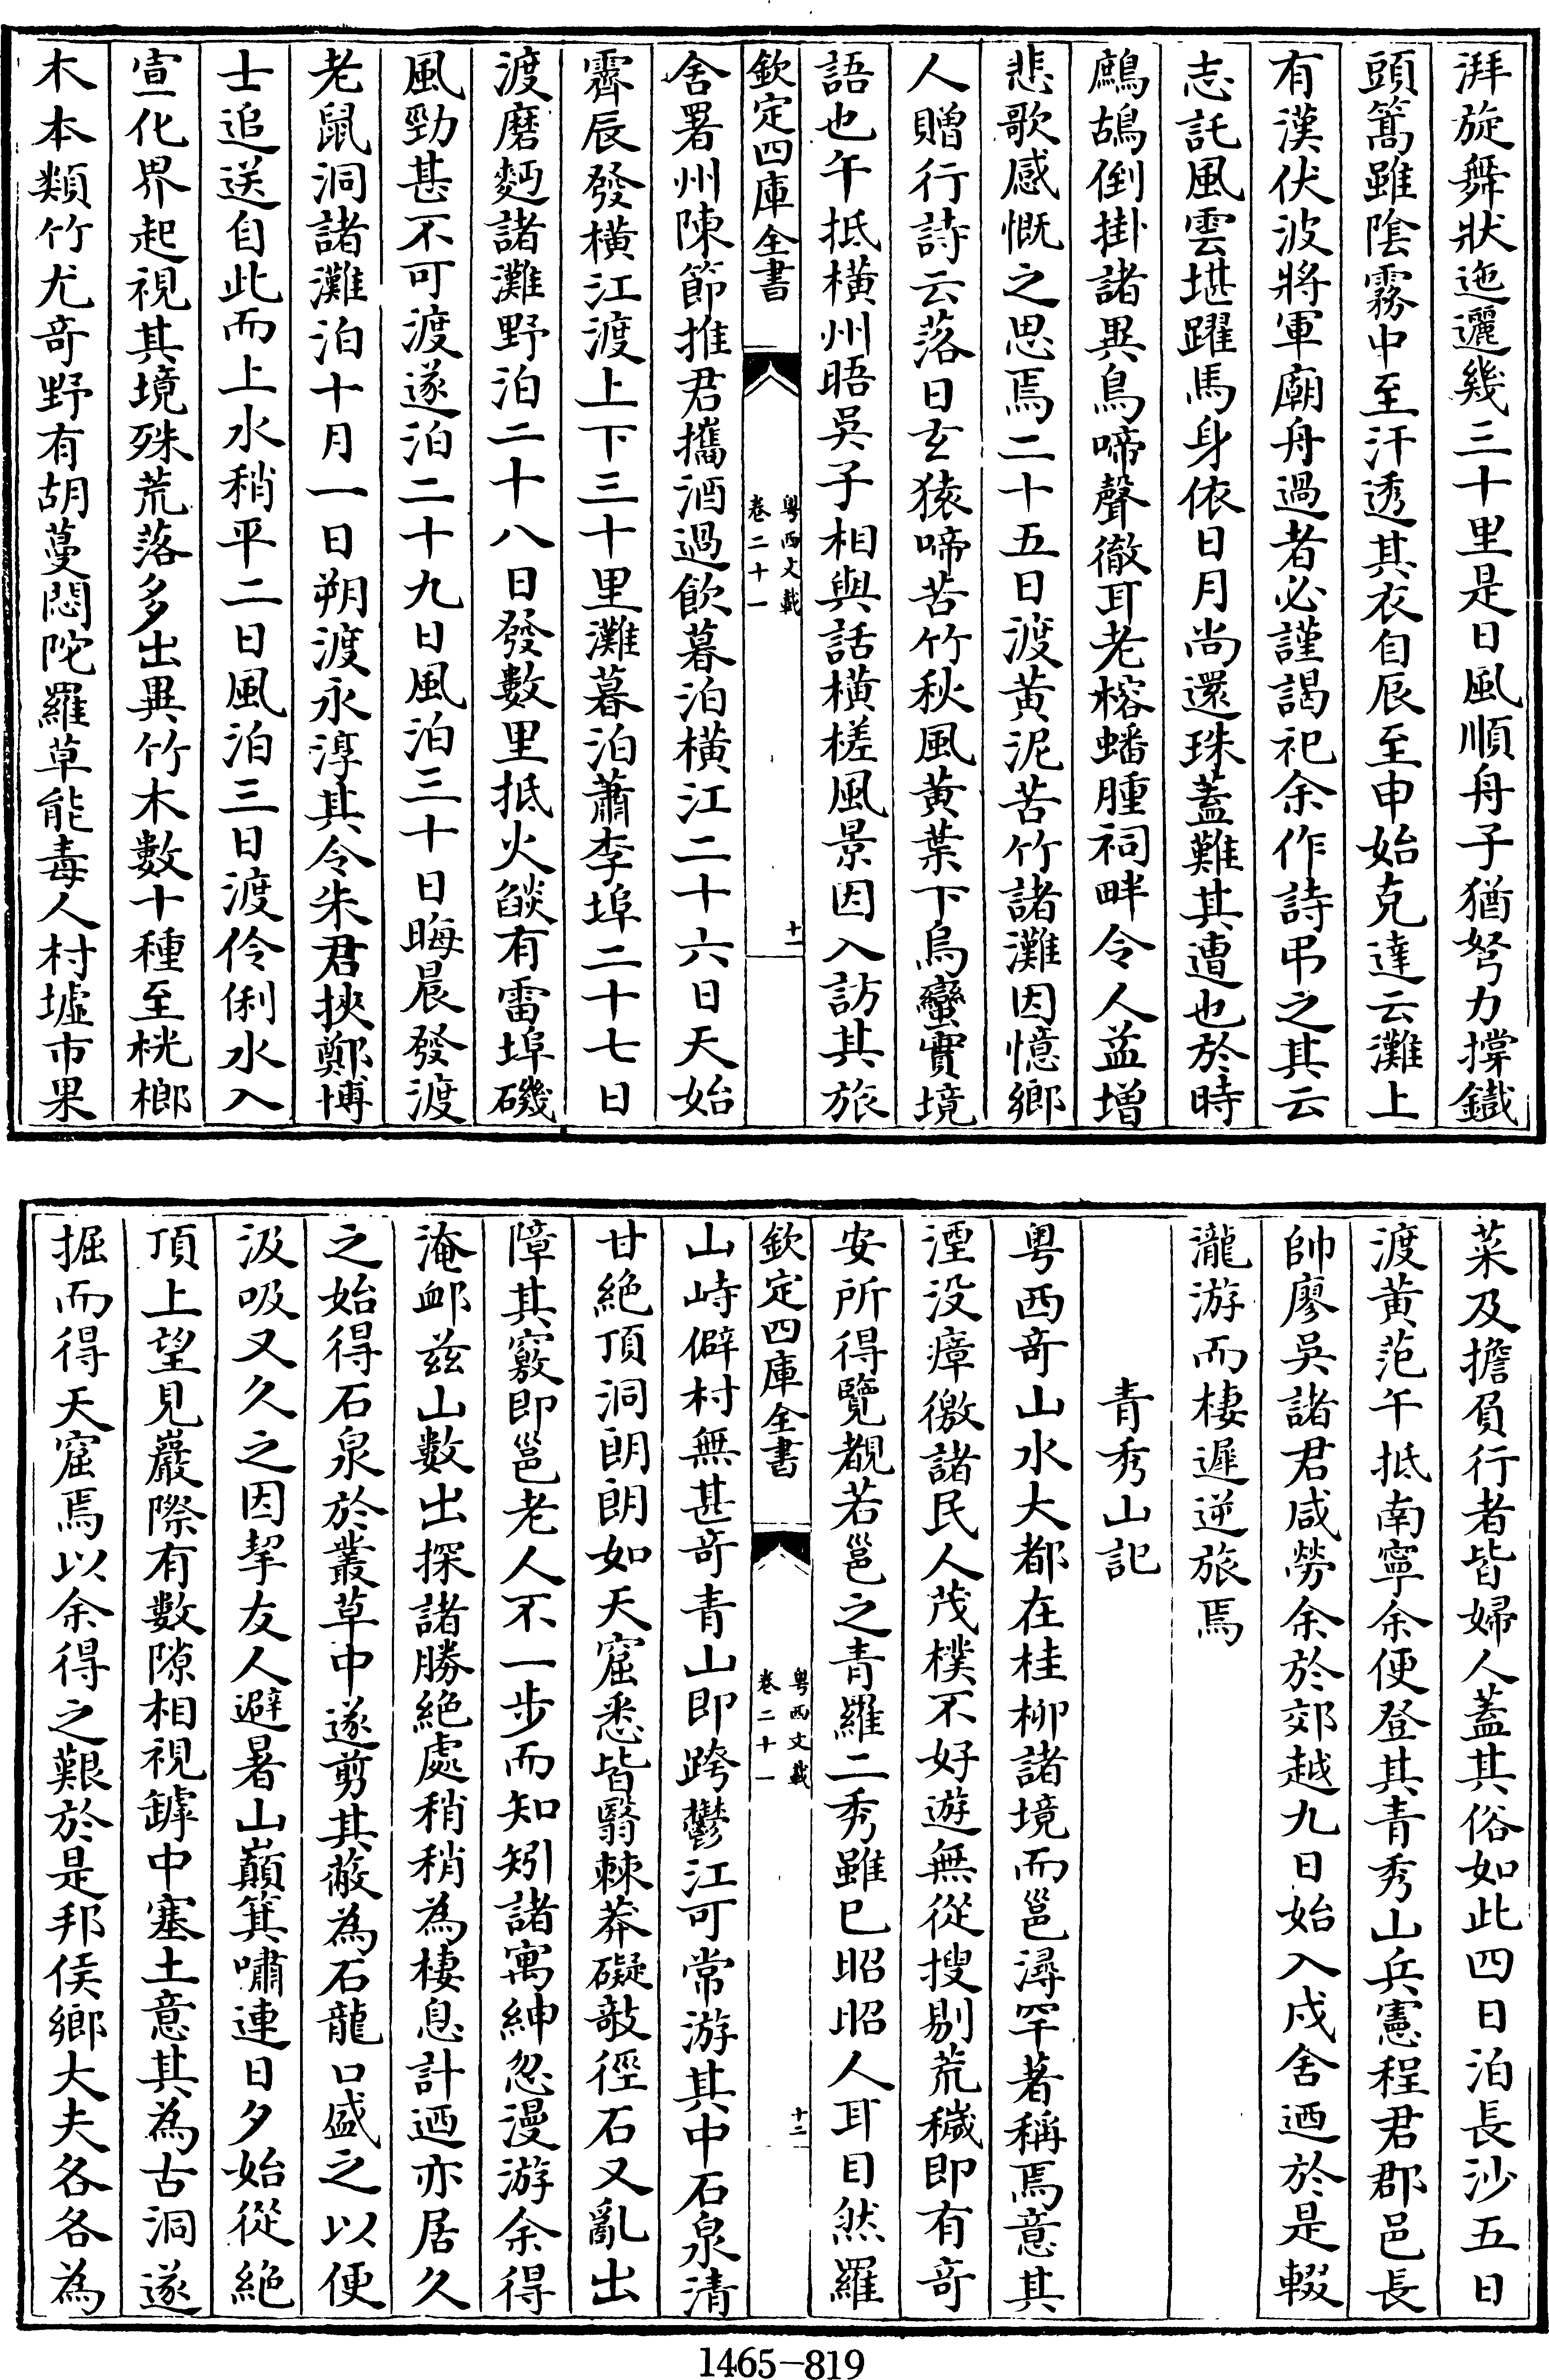 湃旋舞狀迤邐幾三十里是日風順舟子猶努力撐鐡
頭篙雖陰霧中至汗透其衣自辰至申始克達云灘上
有漢伏波將軍廟舟過者必謹謁祀余作詩弔之其云
志託風雲堪躍馬身依日月尚還珠蓋難其遭也於時
鷓鴣倒掛諸異鳥啼聲徹耳老榕蟠腫祠畔令人益增
悲歌感慨之思焉二十五日渡黄泥苦竹諸灘因憶鄉
人贈行詩云落日玄猿啼苦竹秋風黄葉下烏蠻實境
語也午抵橫州晤吳子相與話橫槎風景因入訪其旅
欽定四庫全書
粤西文載
卷二十一
十一
舍署州陳節推君攜酒過飲暮泊橫江二十六日天始
霽辰發橫江渡上下三十里灘暮泊蕭李埠二十七日
渡磨麪諸灘野泊二十八日發數里抵火燄有雷埠磯
風勁甚不可渡遂泊二十九日風泊三十日晦晨發渡
老鼠洞諸灘泊十月一日朔渡永淳其令朱君挾鄭博
士追送自此而上水稍平二日風泊三日渡伶俐水入
宣化界起視其境殊荒落多出異竹木數十種至桄榔
木本類竹尤竒野有胡蔓悶陀羅草能毒人村墟市果
菜及擔負行者皆婦人蓋其俗如此四日泊長沙五日
渡黄范午抵南寧余便登其青秀山兵憲程君郡邑長
帥廖吳諸君咸勞余於郊越九日始入戍舍迺於是輟
瀧游而棲遲逆旅焉
青秀山記
粤西竒山水大都在桂柳諸境而邕潯罕著稱焉意其
湮没瘴徼諸民人茂樸不好遊無從搜剔荒穢即有竒
安所得覽覩若邕之青羅二秀雖已昭昭人耳目然羅
欽定四庫全書
粤西文載
卷二十一
十二
山峙僻村無甚竒青山即跨鬱江可常游其中石泉清
甘絶頂洞朗朗如天窟悉皆翳棘莽礙敧徑石又亂出
障其竅即邕老人不一步而知矧諸寓紳忽漫游余得
淹䘏兹山數出探諸勝絶處稍稍為棲息計迺亦居久
之始得石泉於叢草中遂剪其蔽為石龍口盛之以便
汲吸又久之因挈友人避暑山巔箕嘯連日夕始從絶
頂上望見巖際有數隙相視罅中塞土意其為古洞遂
掘而得天窟焉以余得之艱於是邦侯鄉大夫各各為
1465-819